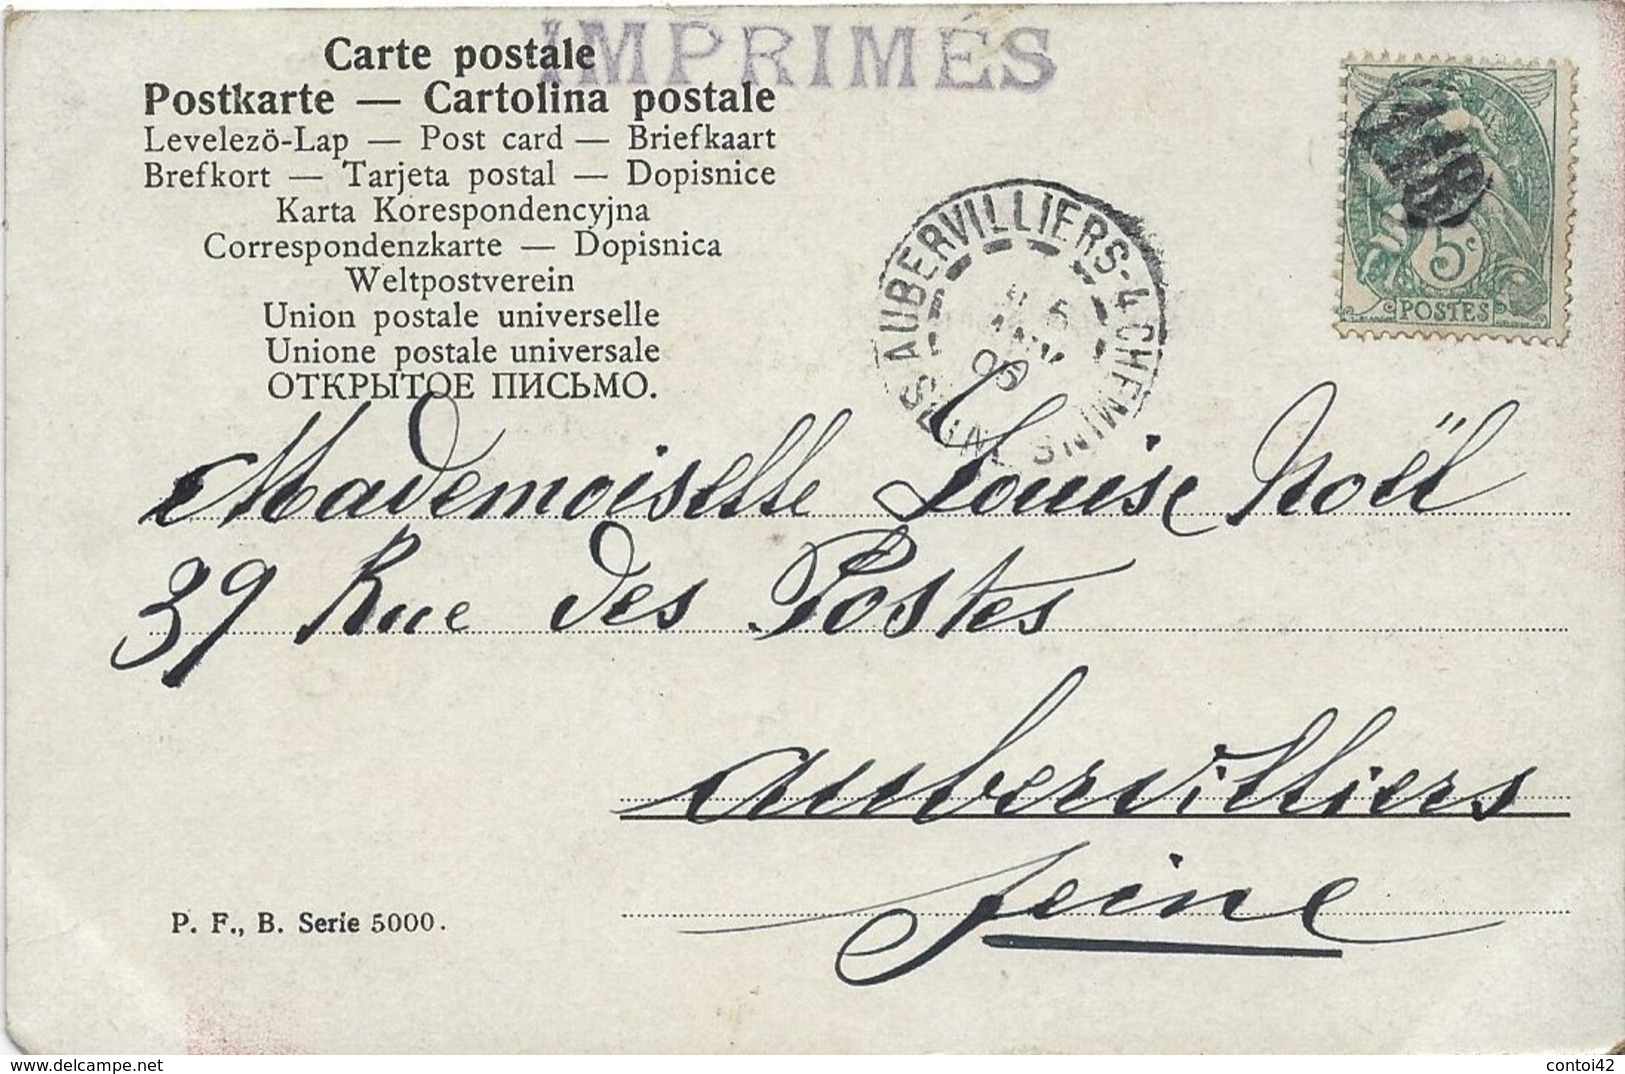 IMPRIMÉS
Carte postale
Postkarte — Cartolina postale
Levelezö-Lap — Post card — Briefkaart
Brefkort — Tarjeta postal — Dopisnice
Karta Korespondencyjna
Correspondenzkarte — Dopisnica
Weltpostverein
Union postale universelle
Unione postale universale
ОТКРЫТОЕ ПИСЬМО.
AUBERVILLIERS-4 CHEMINS
SEINE
05
5c
POSTES
Mademoiselle Louise Noël
39 Rue des Postes
Aubervilliers
Seine
P. F., B. Serie 5000.
www.delcampe.net
contoi42